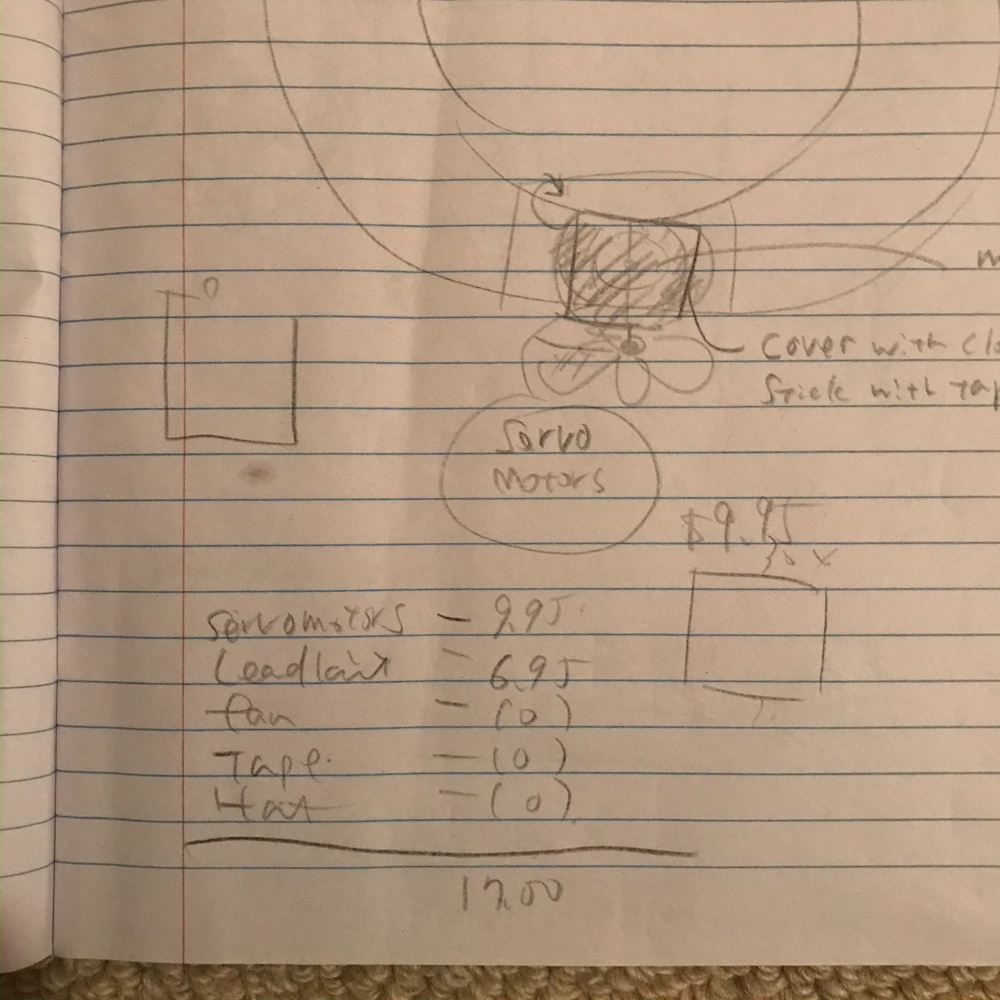 m
Cover with clo
Stick with tap
Servo
Motors
$9.95
servomotors - 9.95
- 6.95
fan - (0)
Tape. - (0)
Hat - (0)
17.00